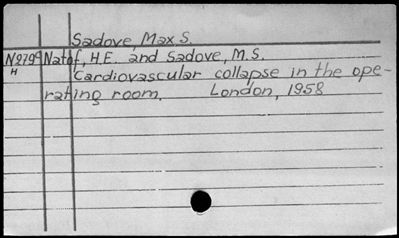 Sadove, Max S.
N279c Natof, H.E. and Sadove, M.S.
H Cardiovascular collapse in the ope-
rating room. London, 1958